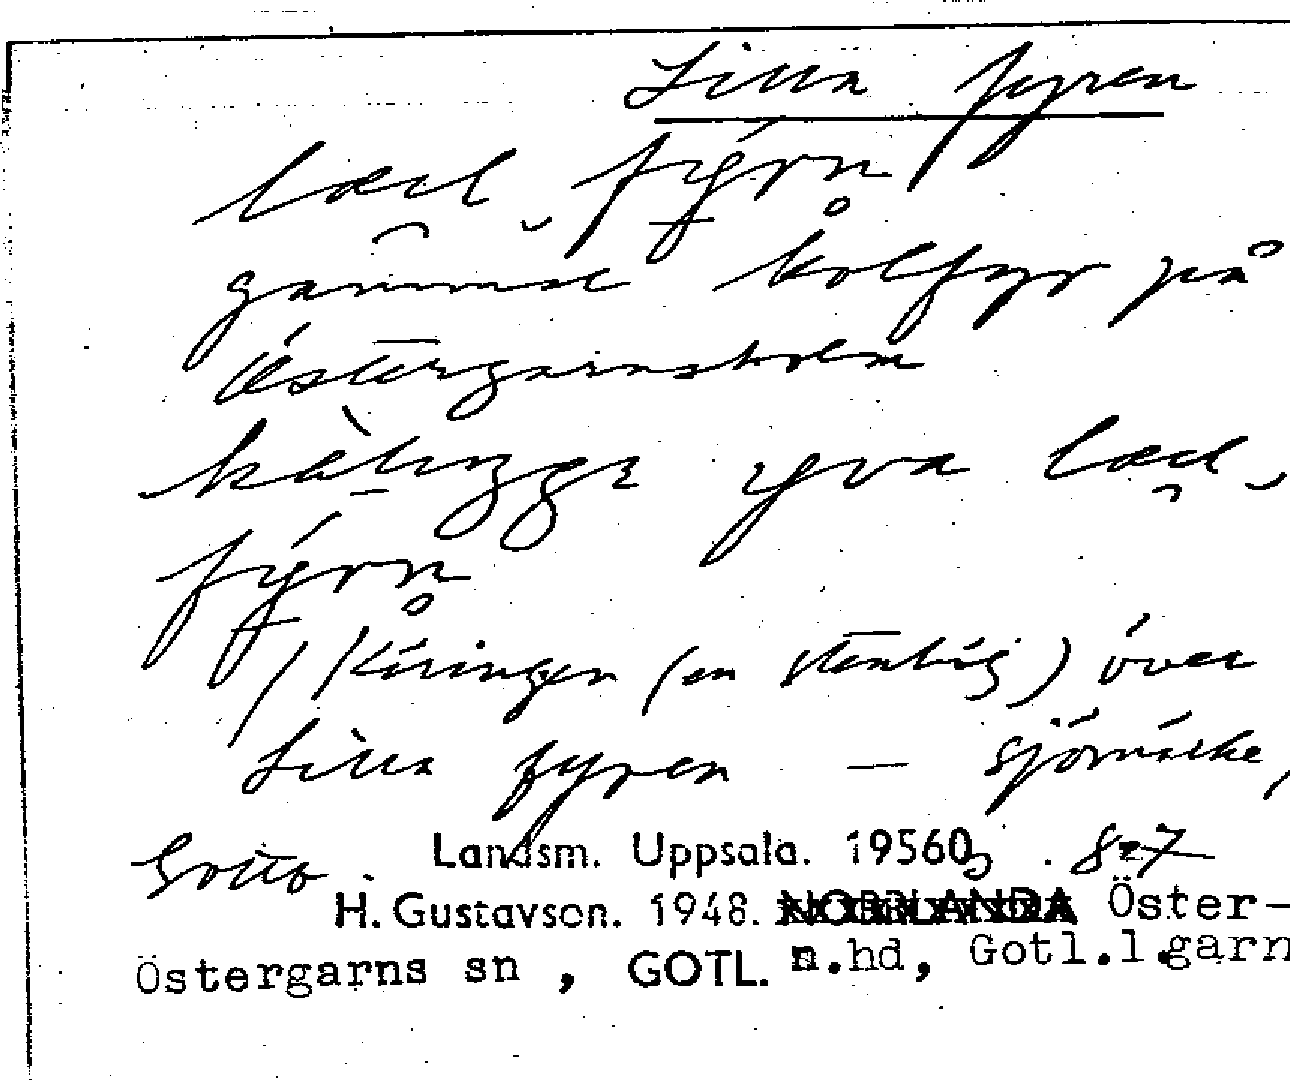 Lilla fyren
gammal kolfyr på
Östergarnsholm
yva
fýrn
/Käringen (en stenhög) över
Lilla fyren — sjömärke,
Landsm. Uppsala. 19560, s. 87
H. Gustavson. 1948. NORRLANDA Öster-
Östergarns sn , GOTL. n.hd, Gotl.l.garn